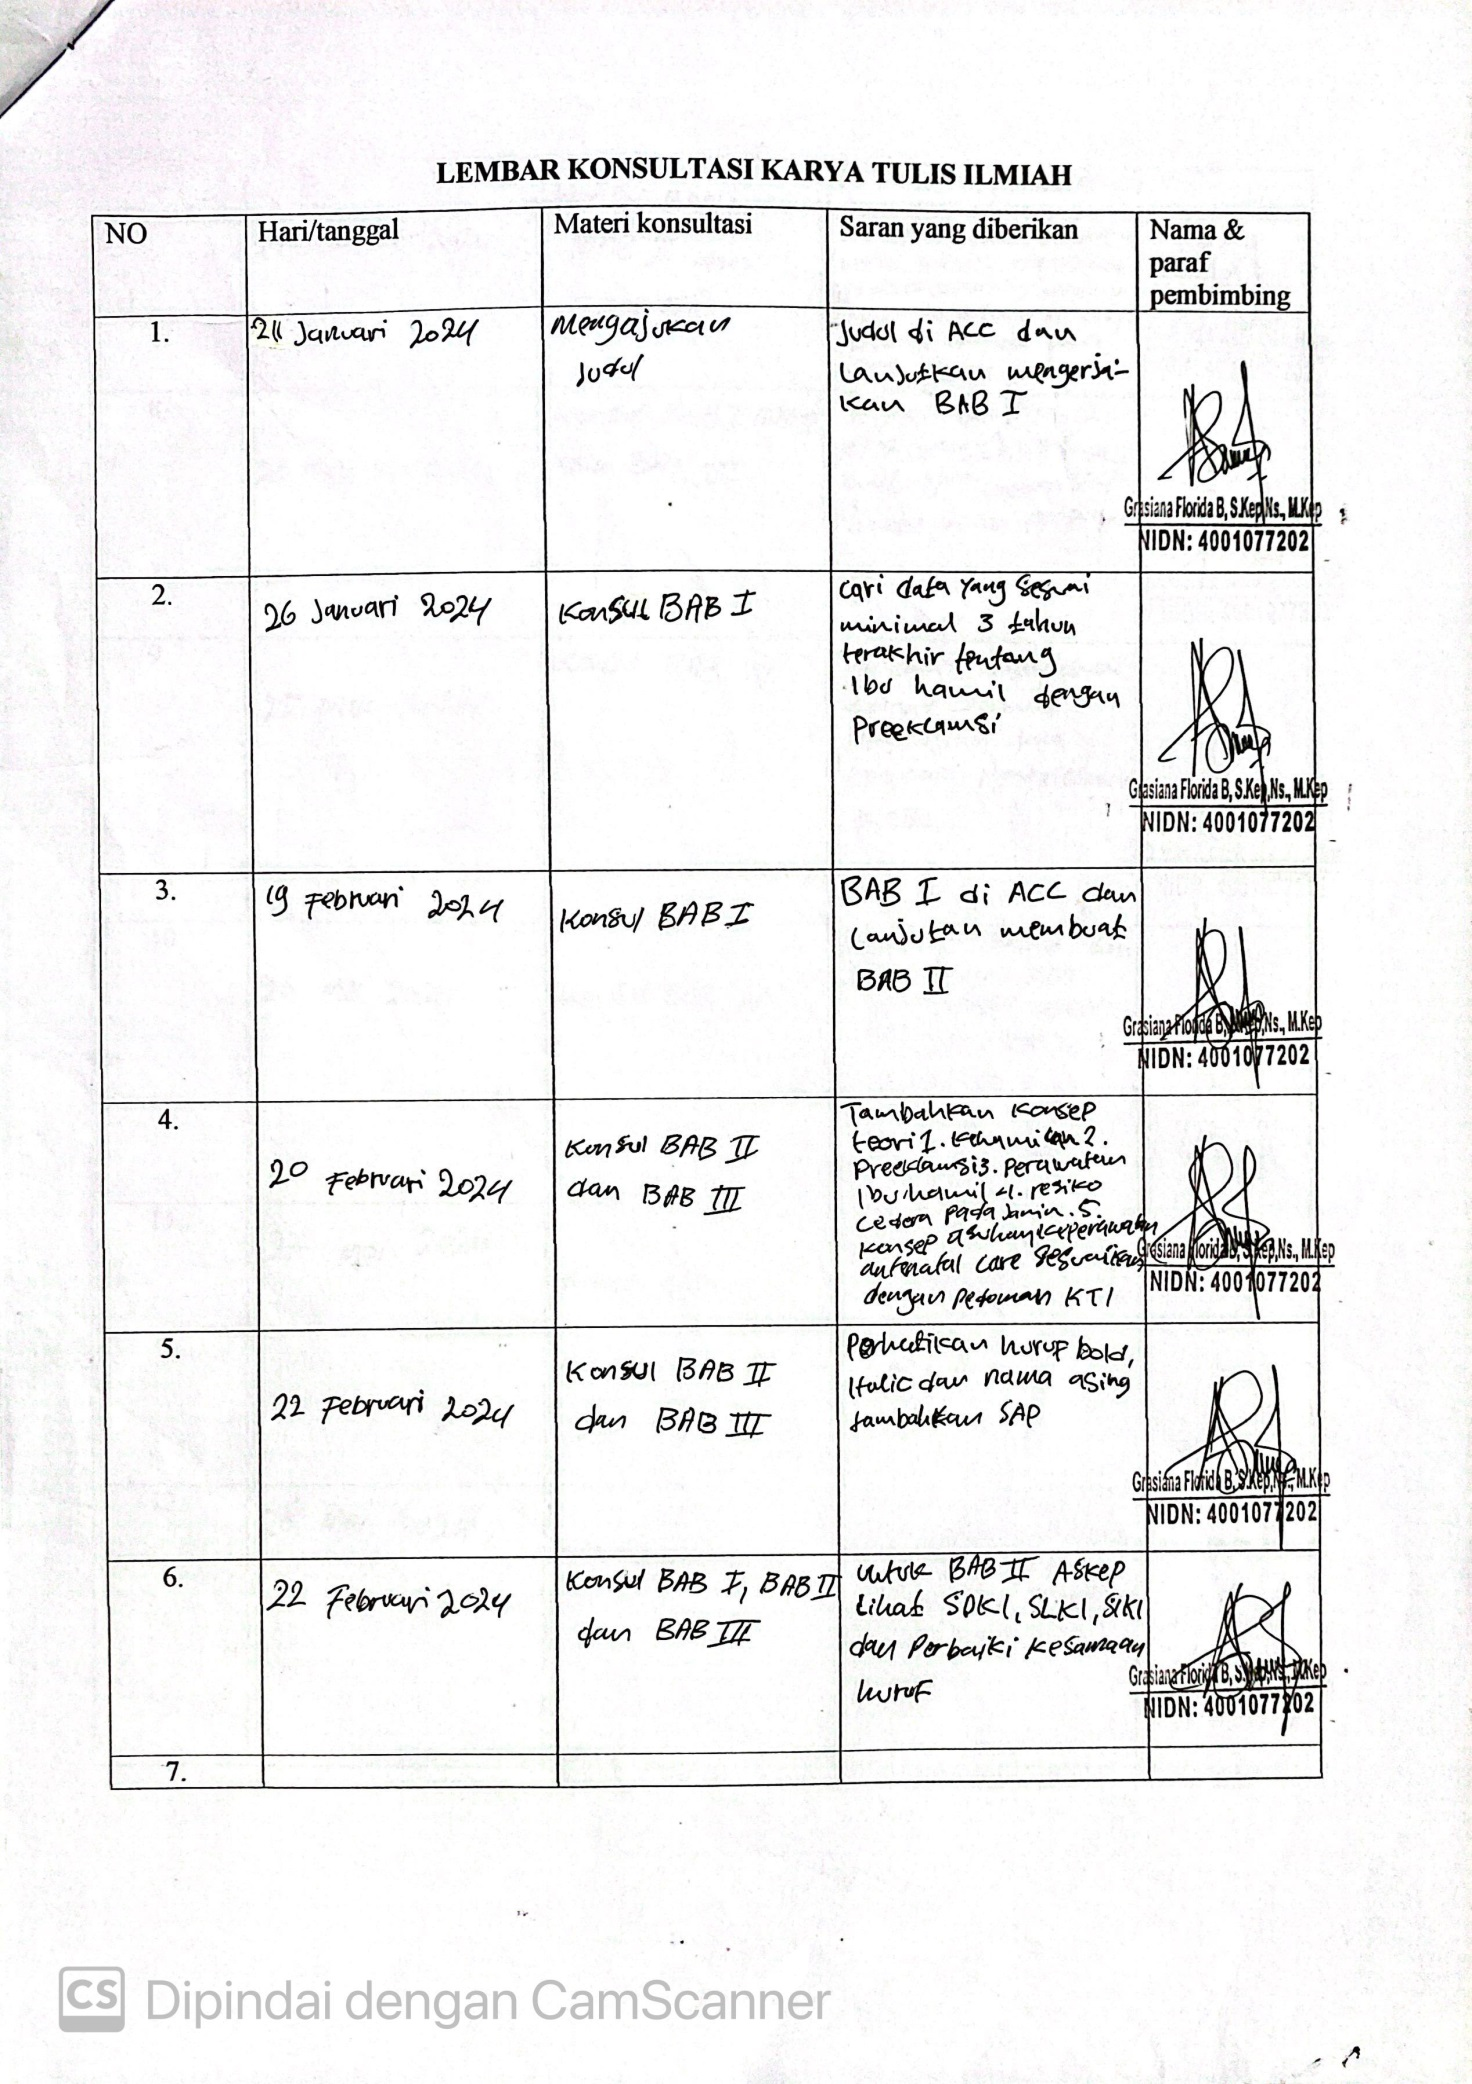 LEMBAR KONSULTASI KARYA TULIS ILMIAH
NO
Hari/tanggal
Materi konsultasi
Saran yang diberikan
Nama &
paraf
pembimbing
1.
Januari 2024
Mengajukan
Judul
Judul di ACC dan
Lanjutkan mengerja-
kan BAB I
Grasiana Florida B, S.Kep,Ns., M.Kep
NIDN: 4001077202
2.
26 Januari 2024
Konsul BAB I
Cari data yang sesuai
minimal 3 tahun
terakhir tentang
Ibu hamil dengan
Preeklamsi
Grasiana Florida B, S.Kep,Ns., M.Kep
NIDN: 4001077202
3.
19 Februari 2024
Konsul BAB I
BAB I di ACC dan
Lanjutkan membuat
BAB II
Grasiana Florida B, S.Kep,Ns., M.Kep
NIDN: 4001077202
4.
20 Februari 2024
Konsul BAB II
dan BAB III
Tambahkan Konsep
teori 1. Kehamilan 2.
Preeklamsi 3. Perawatan
Ibu hamil 4. resiko
Cedera pada Janin. 5.
Konsep asuhan keperawatan
antenatal care sesuaikan
dengan pedoman KTI
Grasiana Florida B, S.Kep,Ns., M.Kep
NIDN: 4001077202
5.
22 Februari 2024
Konsul BAB II
dan BAB III
Perhatikan huruf bold,
Italic dan nama asing
tambahkan SAP
Grasiana Florida B, S.Kep,Ns., M.Kep
NIDN: 4001077202
6.
22 Februari 2024
Konsul BAB I, BAB II
dan BAB III
Untuk BAB II ASKEP
Lihat SDKI, SLKI, SIKI
dan Perbaiki kesamaan
huruf
Grasiana Florida B, S.Kep,Ns., M.Kep
NIDN: 4001077202
7.
CS Dipindai dengan CamScanner